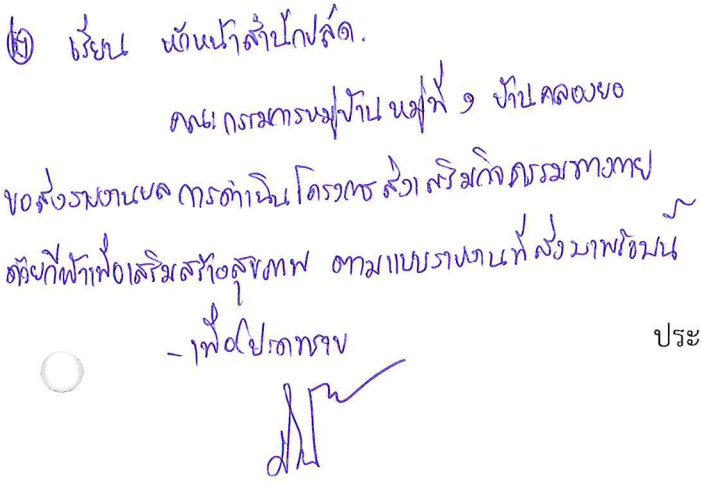 เรียน หัวหน้าสำนักปลัด.
คณะกรรมการหมู่บ้าน หมู่ที่ ๑ บ้านคลองยอ
ขอส่งรายงานผลการดำเนินโครงการส่งเสริมกิจกรรมทางกาย
ด้วยกีฬาเพื่อเสริมสร้างสุขภาพ ตามแบบรายงานที่ส่งมาพร้อมนี้
- เพื่อโปรดทราบ
ประ